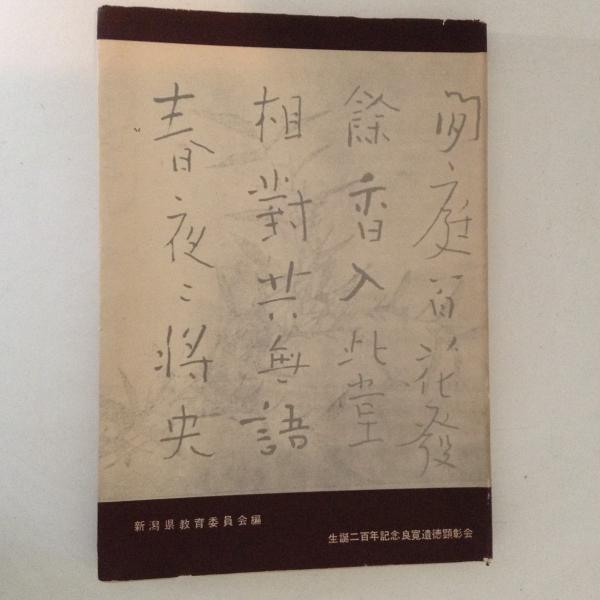 間庭百花發
餘香入此堂
相對共無語
春夜々將央
新潟県教育委員会編
生誕二百年記念良寛遺徳顕彰会